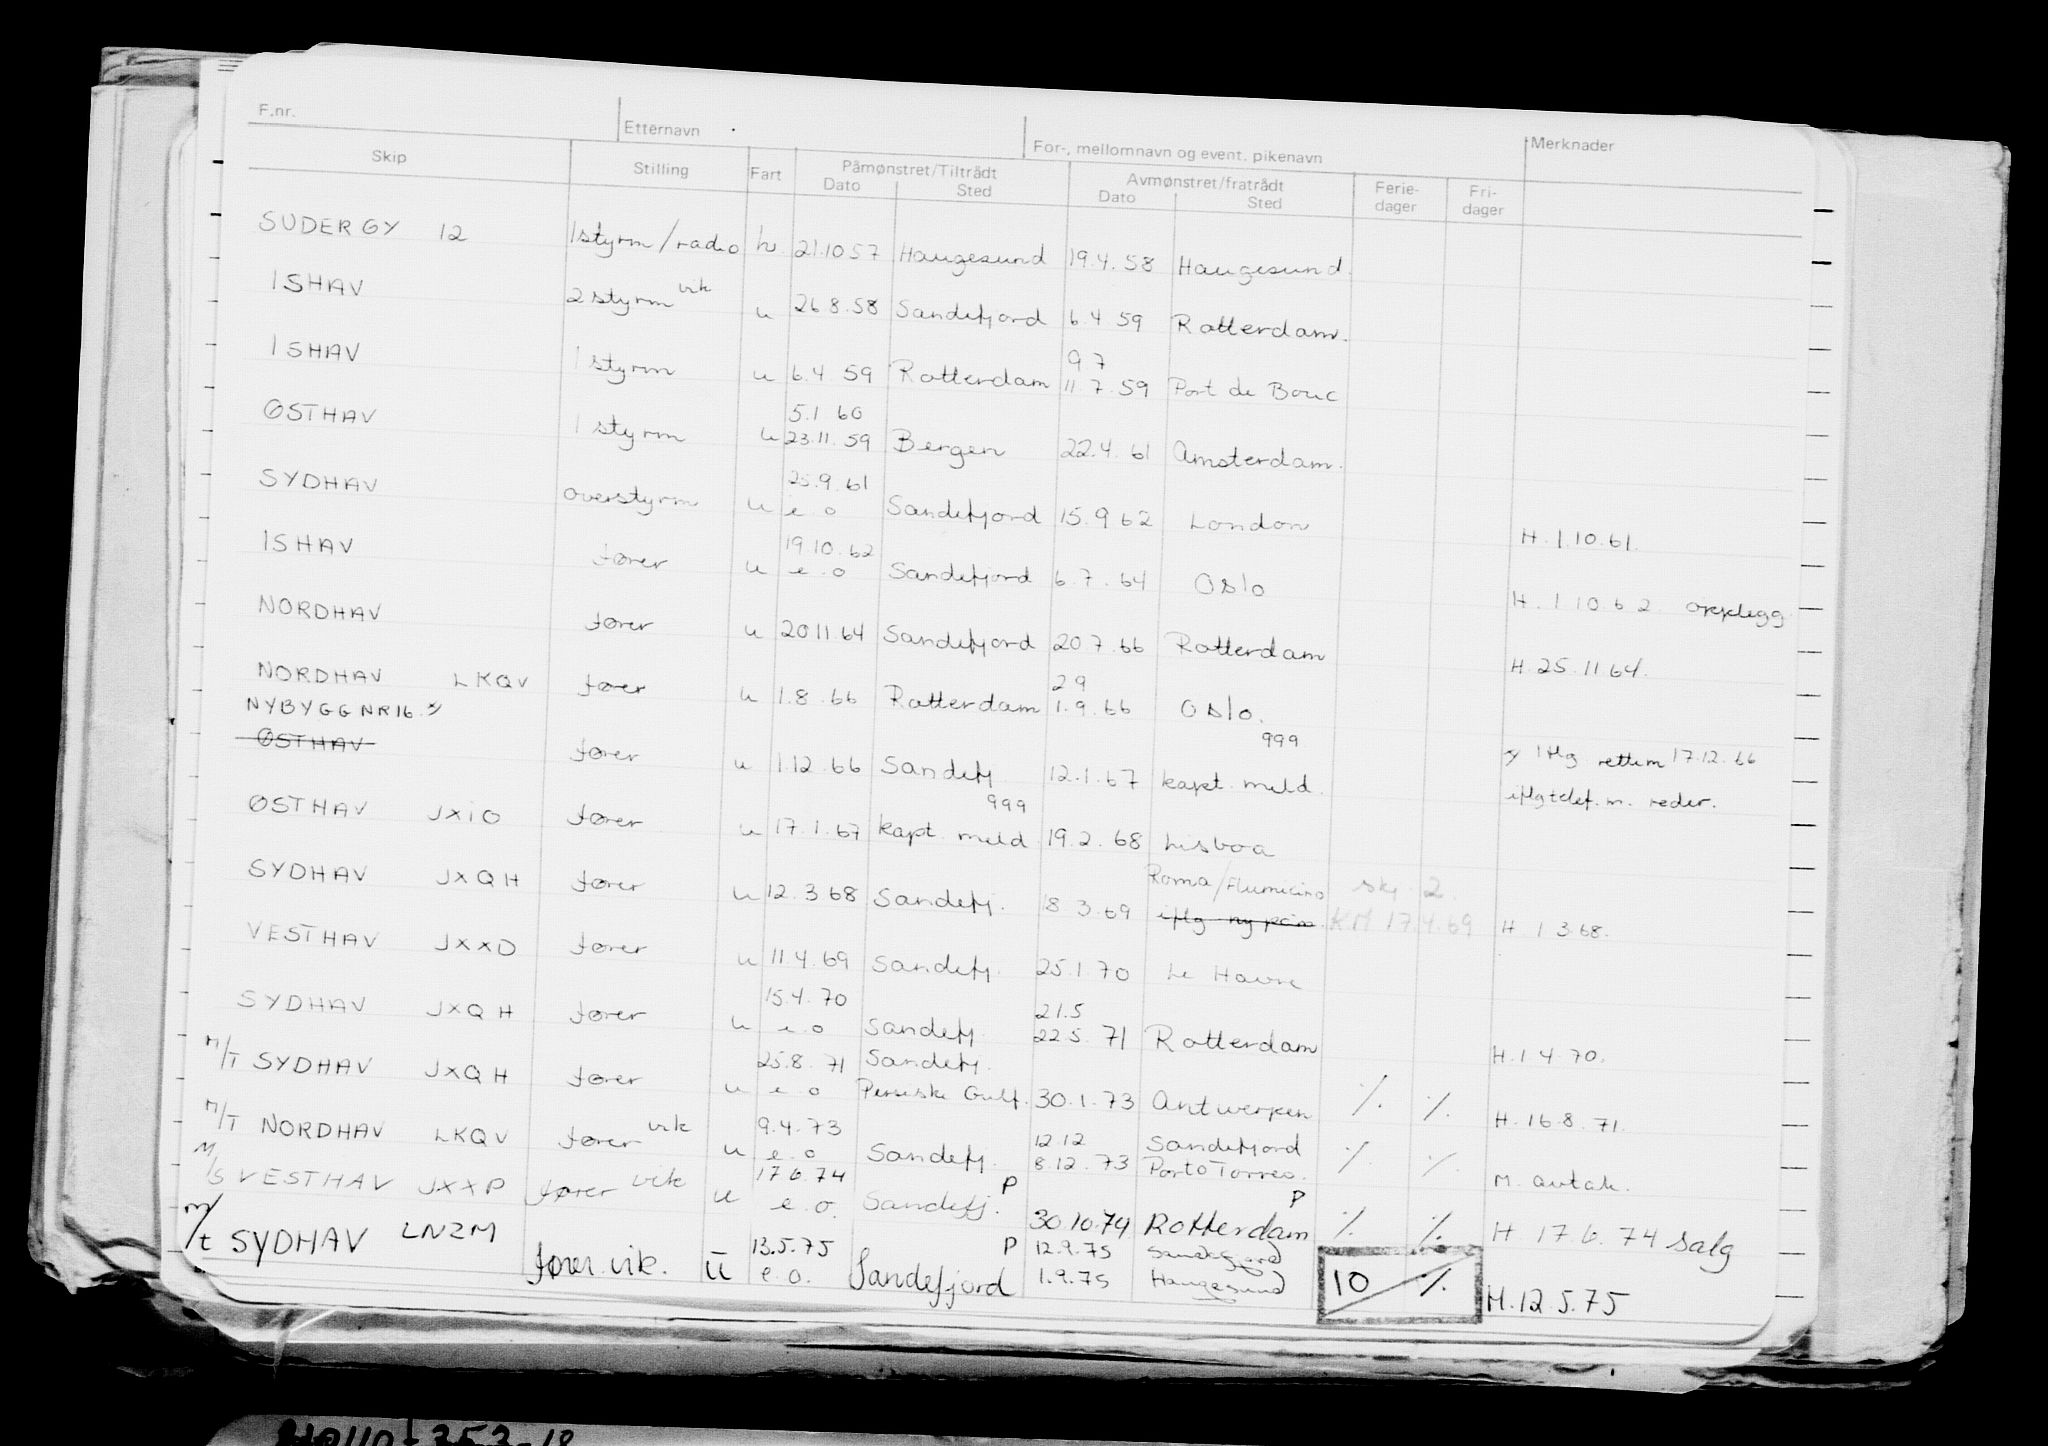 F.nr. Etternavn For-, mellomnavn og event. pikenavn Merknader
Skip Stilling Fart Påmønstret/Tiltrådt Avmønstret/fratrådt Ferie- Fri-
Dato Sted Dato Sted dager dager
SUDERGY 12 1styrm/radio h 21.10 57 Haugesund 19.4.58 Haugesund.
ISHAV 2 styrm vik u 26 8.58 Sandefjord 6.4 59 Rotterdam.
9 7
ISHAV 1 styrm u 6.4 59 Rotterdam 11.7.59 Port de Bouc
5.1 60
ØSTHAV 1 styrm u 23.11.59 Bergen 22.4.61 Amsterdam.
25.9.61
SYDHAV overstyrm u e.o Sandefjord 15.9 62 London H.1.10.61.
19.10.62
ISHAV fører u e.o Sandefjord 6.7.64 Oslo H.1 10.62 opplegg
NORDHAV fører u 20 11.64 Sandefjord 20 7.66 Rotterdam H.25.11 64.
2 9
NORDHAV LKQV fører u 1.8.66 Rotterdam 1.9.66 Oslo.
NYBYGG NR 16. x) 999
ØSTHAV fører u 1.12.66 Sandefj 12.1.67 kapt. meld. x) iflg rettem 17.12.66
iflg telef. m. reder.
999
ØSTHAV JXiO fører u 17.1.67 kapt. meld 19.2.68 Lisboa
Roma/Fiumicino skj. 2.
SYDHAV JXQH fører u 12.3 68 Sandefj. 18 3.69 iflg ny påm. KM 17.4.69 H.1 3.68.
VESTHAV JXXO fører u 11.4.69 Sandefj. 25.1.70 Le Havre
15.4.70 21.5
SYDHAV JXQH fører u e.o Sandefj. 22.5.71 Rotterdam H.1 4.70.
25.8.71 Sandefj.
M/T SYDHAV JXQH fører u e.o Persiske Gulf. 30.1.73 Antwerpen ./. ./. H.16.8.71.
9.4.73 12.12 Sandefjord
M/T NORDHAV LKQV fører vik u e.o Sandefj. 8.12.73 Porto Torres. ./. ./. M. avtak.
17.6.74 P P
M/S VESTHAV JXXP fører vik u e.o. Sandefj. 30.10.74 Rotterdam ./. ./. H 17.6.74 salg
13.5.75 P 12.9.75 Sandefjord
m/t SYDHAV LNZM fører vik. u e.o. Sandefjord 1.9.75 Haugesund 10 ./. H.12.5.75